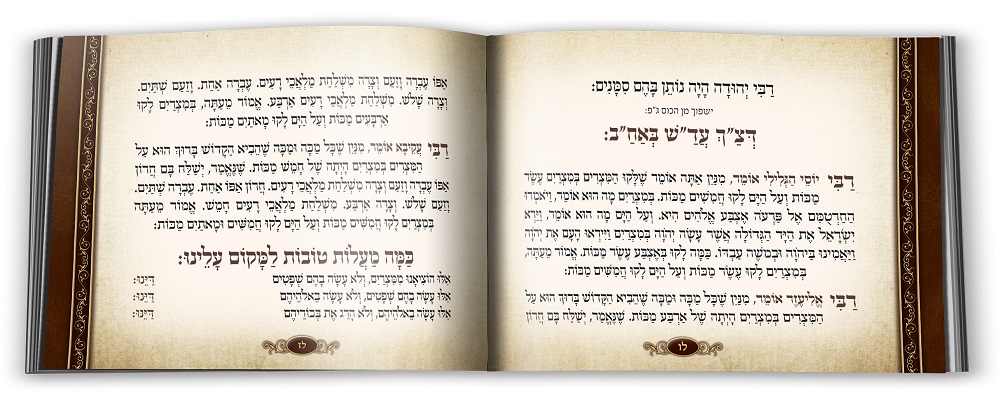 רַבִּי יְהוּדָה הָיָה נוֹתֵן בָּהֶם סִמָּנִים:
ישפוך מן הכוס ג"פ:
דְּצַ"ךְ עֲדַ"שׁ בְּאַחַ"ב:
רַבִּי יוֹסֵי הַגְּלִילִי אוֹמֵר, מִנַּיִן אַתָּה אוֹמֵר שֶׁלָּקוּ הַמִּצְרִים בְּמִצְרַיִם עֶשֶׂר
מַכּוֹת וְעַל הַיָּם לָקוּ חֲמִשִּׁים מַכּוֹת. בְּמִצְרַיִם מָה הוּא אוֹמֵר, וַיֹּאמְרוּ
הַחַרְטֻמִּם אֶל פַּרְעֹה אֶצְבַּע אֱלֹהִים הִיא. וְעַל הַיָּם מָה הוּא אוֹמֵר, וַיַּרְא
יִשְׂרָאֵל אֶת הַיָּד הַגְּדוֹלָה אֲשֶׁר עָשָׂה יְהֹוָה בְּמִצְרַיִם וַיִּירְאוּ הָעָם אֶת יְהֹוָה
וַיַּאֲמִינוּ בַּיהֹוָה וּבְמשֶׁה עַבְדּוֹ. כַּמָּה לָקוּ בְּאֶצְבַּע עֶשֶׂר מַכּוֹת. אֱמוֹר מֵעַתָּה,
בְּמִצְרַיִם לָקוּ עֶשֶׂר מַכּוֹת וְעַל הַיָּם לָקוּ חֲמִשִּׁים מַכּוֹת:
רַבִּי אֱלִיעֶזֶר אוֹמֵר, מִנַּיִן שֶׁכָּל מַכָּה וּמַכָּה שֶׁהֵבִיא הַקָּדוֹשׁ בָּרוּךְ הוּא עַל
הַמִּצְרִים בְּמִצְרַיִם הָיְתָה שֶׁל אַרְבַּע מַכּוֹת. שֶׁנֶּאֱמַר, יְשַׁלַּח בָּם חֲרוֹן
לו
אַפּוֹ עֶבְרָה וָזַעַם וְצָרָה מִשְׁלַחַת מַלְאֲכֵי רָעִים. עֶבְרָה אַחַת. וָזַעַם שְׁתַּיִם.
וְצָרָה שָׁלֹשׁ. מִשְׁלַחַת מַלְאֲכֵי רָעִים אַרְבַּע. אֱמוֹר מֵעַתָּה, בְּמִצְרַיִם לָקוּ
אַרְבָּעִים מַכּוֹת וְעַל הַיָּם לָקוּ מָאתַיִם מַכּוֹת:
רַבִּי עֲקִיבָא אוֹמֵר, מִנַּיִן שֶׁכָּל מַכָּה וּמַכָּה שֶׁהֵבִיא הַקָּדוֹשׁ בָּרוּךְ הוּא עַל
הַמִּצְרִים בְּמִצְרַיִם הָיְתָה שֶׁל חָמֵשׁ מַכּוֹת. שֶׁנֶּאֱמַר, יְשַׁלַּח בָּם חֲרוֹן
אַפּוֹ עֶבְרָה וָזַעַם וְצָרָה מִשְׁלַחַת מַלְאֲכֵי רָעִים. חֲרוֹן אַפּוֹ אַחַת. עֶבְרָה שְׁתַּיִם.
וָזַעַם שָׁלֹשׁ. וְצָרָה אַרְבַּע. מִשְׁלַחַת מַלְאֲכֵי רָעִים חָמֵשׁ. אֱמוֹר מֵעַתָּה
בְּמִצְרַיִם לָקוּ חֲמִשִּׁים מַכּוֹת וְעַל הַיָּם לָקוּ חֲמִשִּׁים וּמָאתַיִם מַכּוֹת:
כַּמָּה מַעֲלוֹת טוֹבוֹת לַמָּקוֹם עָלֵינוּ:
אִלּוּ הוֹצִיאָנוּ מִמִּצְרַיִם, וְלֹא עָשָׂה בָהֶם שְׁפָטִים דַּיֵּנוּ:
אִלּוּ עָשָׂה בָהֶם שְׁפָטִים, וְלֹא עָשָׂה בֵאלֹהֵיהֶם דַּיֵּנוּ:
אִלּוּ עָשָׂה בֵאלֹהֵיהֶם, וְלֹא הָרַג אֶת בְּכוֹרֵיהֶם דַּיֵּנוּ:
לז